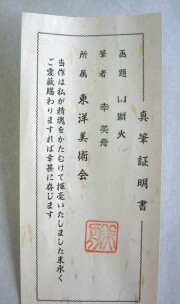 真筆証明書
画題 山頭火
筆者 幸美舟
所属 東洋美術会
当作は私が精魂をかたむけて揮毫いたしました末永く
ご愛蔵賜わりますれば幸甚に存じます